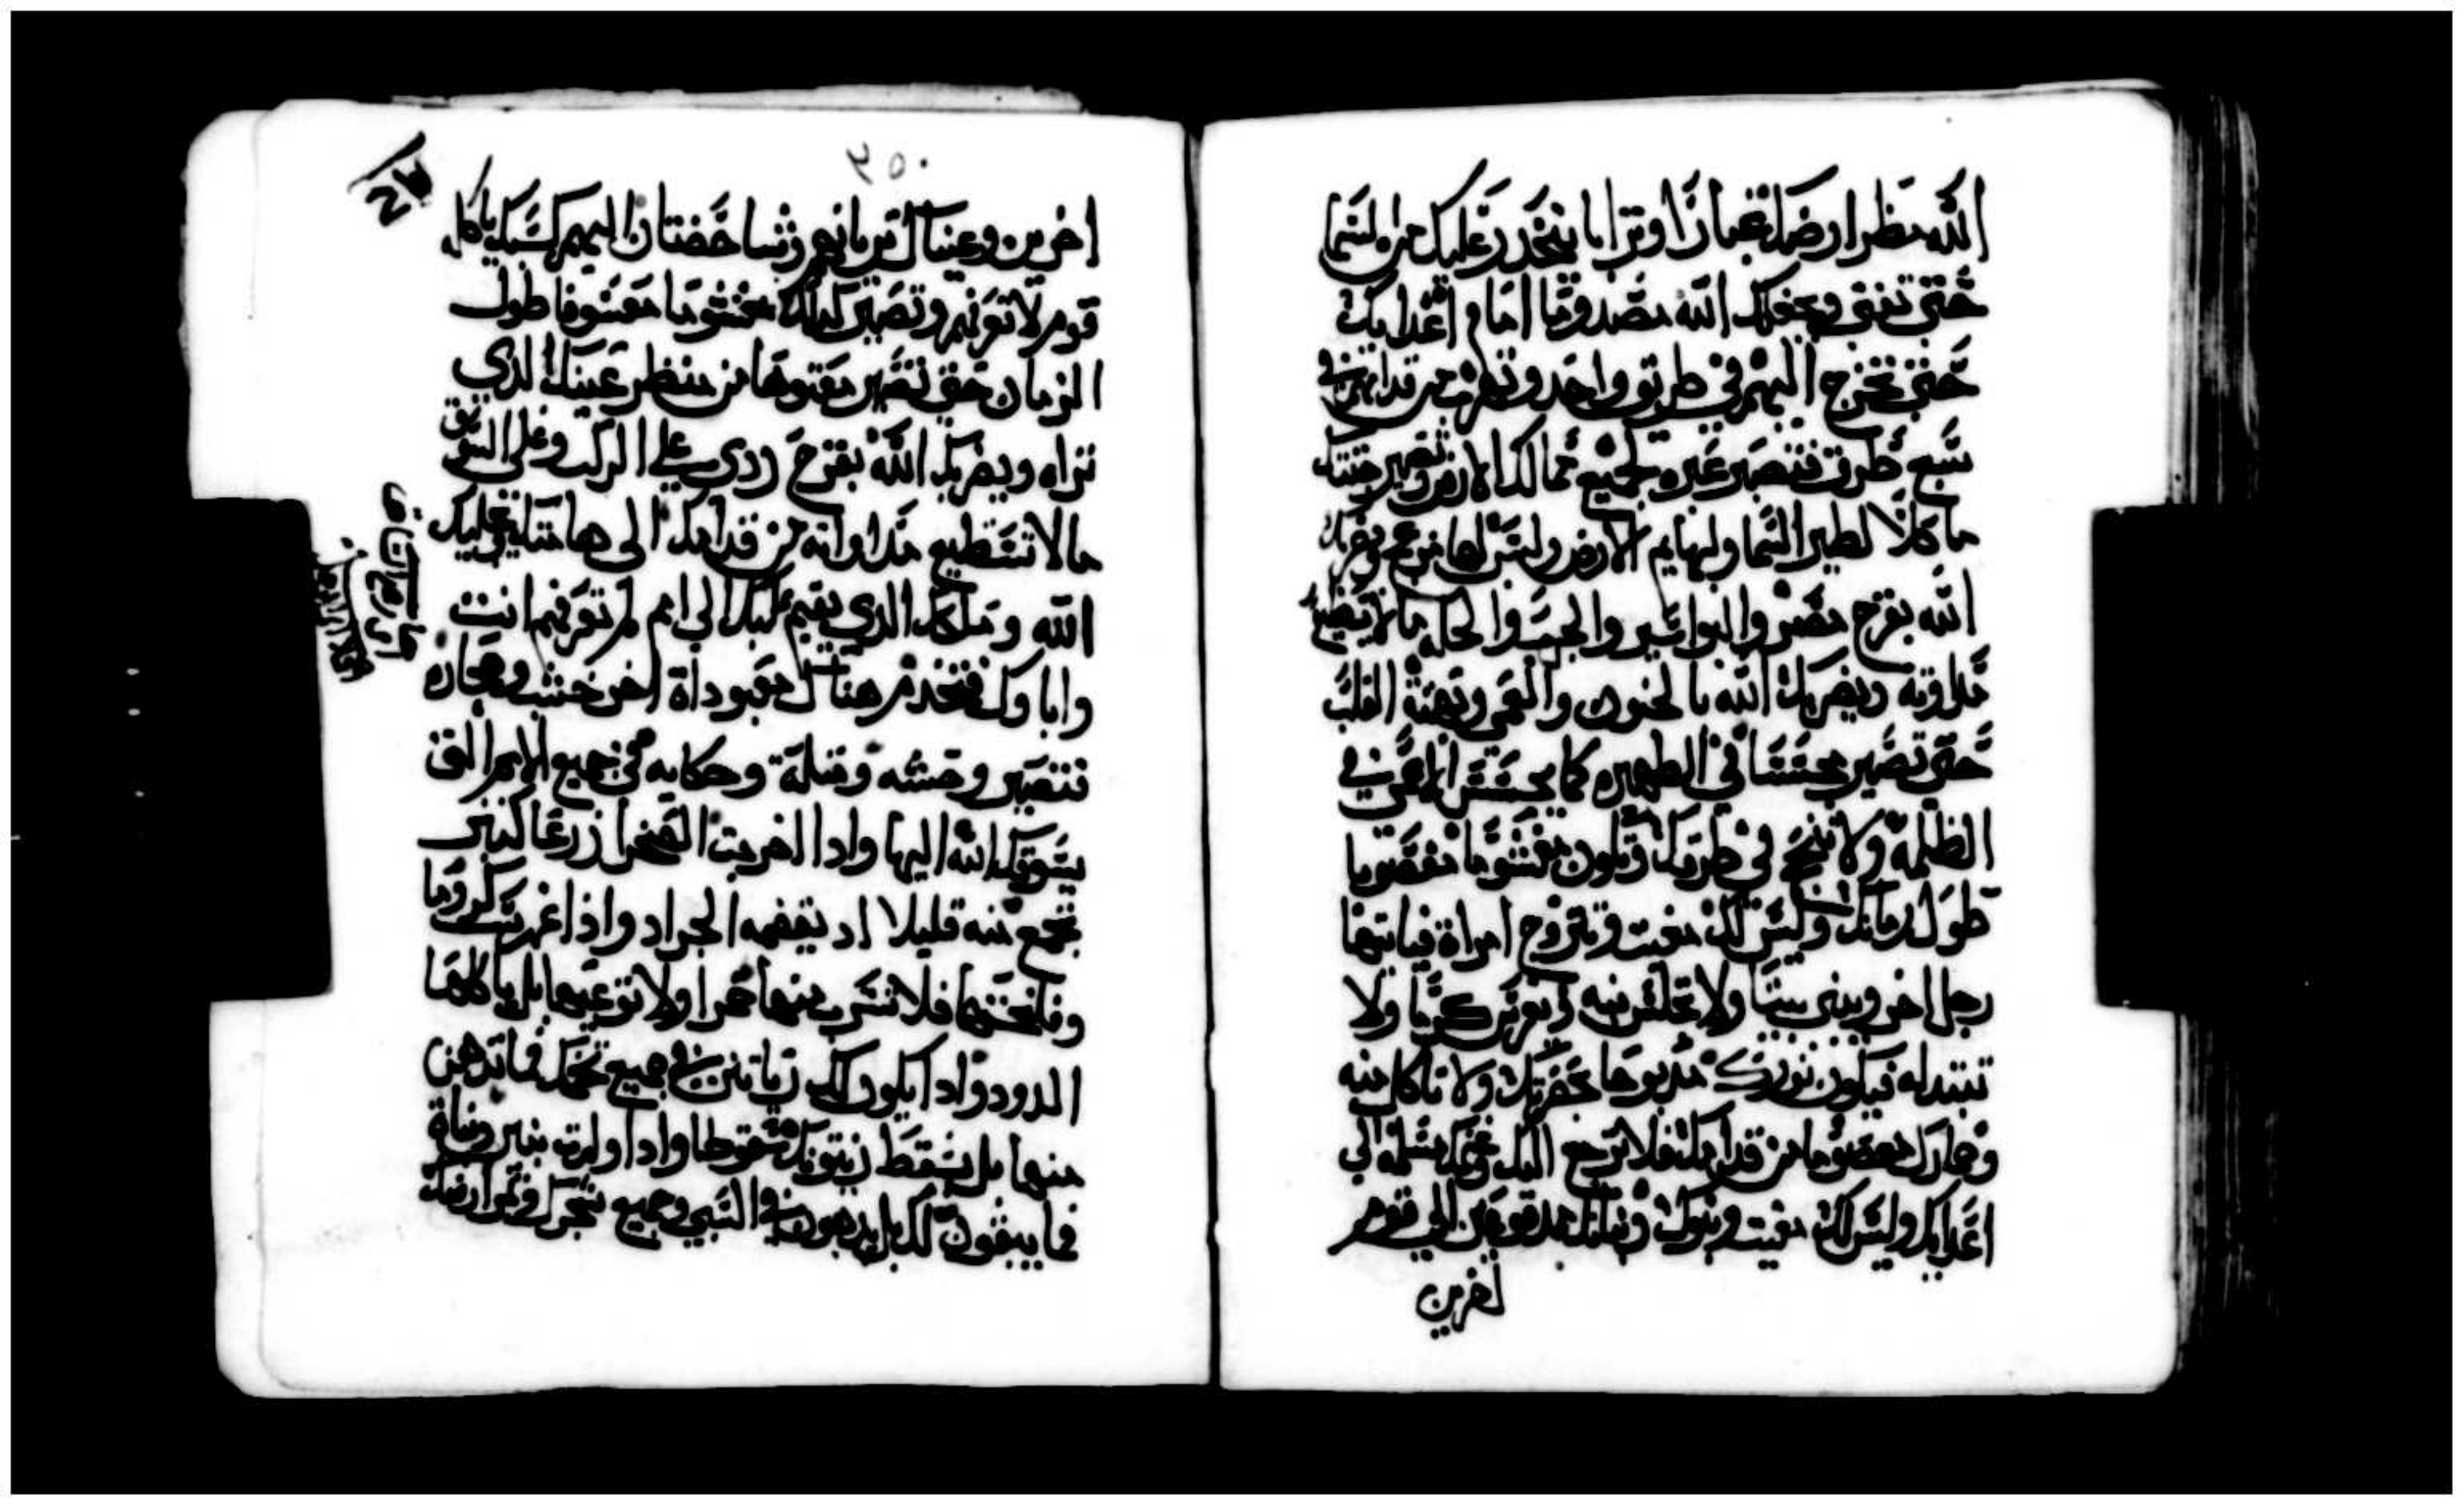 الله مطر ارضك غبارًا وترابا ينحدر عليك من السما
حتى تفنى ويجعلك الله مصدومًا امام اعدايك
حتى تخرج اليهم في طريق واحد وتهرب من قدامهم في
سبع طرق فتصير عبره لجميع ممالك الارض وتصير جثتك
ماكلاً لطير السما ولبهايم الارض وليس لها مزعج ويضربك
الله بقرح مصر والبواسير والجرب والحكه ما لا تستطيع
مداوته ويضربك الله بالجنون والعمى وبهتة القلب
حتى تصير مجتسًا في الظهيره كما يجتس الاعمى في
الظلمة ولا تنجح في طرقك وتكون مغشومًا مغصوبا
طول زمانك وليس لك مغيث وتتزوج امراة فياتيها
رجل اخر ويبنى بيتًا ولا تجلس فيه وتغرس كرمًا ولا
تبتدله فيكون ثورك مدبوحا بحضرتك ولا تاكل منه
وحمارك مغصوبا من قدامك فلا يرجع اليك وغنمك مسلمه الى
اعدايك وليس لك مغيث وبنوك وبناتك مدفوعين الى قوم
اخرين
٢٥٠
اخرين وعيناك تريانهم وشاخصتان اليهم كسبيل ياكله
قوم لا تعرفهم وتصير كذلك مغشوما معسوفا طول
الزمان حتى تصير معتوها من منظر عينك الذي
تراه ويضربك الله بقرح ردى على الركب وعلى السوق
ما لا تستطيع مداواته من قدامك الى هامتك يجليك
الله وملكك الذي يقيم عليك الى امم لم تعرفهم انت
واباوك فتخدم هناك معبوداة اخر خشب وحجاره
فتصير وحشه ومثلة وحكايه في جميع الامم التى
يسوقك الله اليها وادا اخرجت الصحرا زرعا كثير
تجمع منه قليلا اد يقضمه الجراد واذا غرست كرومًا
وفلحتها فلا تشرب منها خمرا ولا توعيها بل ياكلها
الدود وادا يكون لك زياتين في جميع تخمك فما تدهن
منها بل يسقط زيتونك سقوطا وادا ولدت بنين وبناة
فما يبقون لك بل يدهبون في السبي وجميع شجرك وثمر ارضك